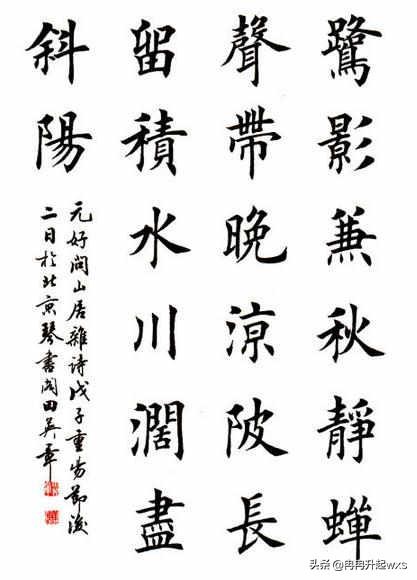 鷺影兼秋靜蟬
聲帶晚涼陂長
留積水川濶盡
斜陽
元好問山居雜詩戊子重陽節後
二日於北京琴書閣田英章
头条 @冉冉升起wxs